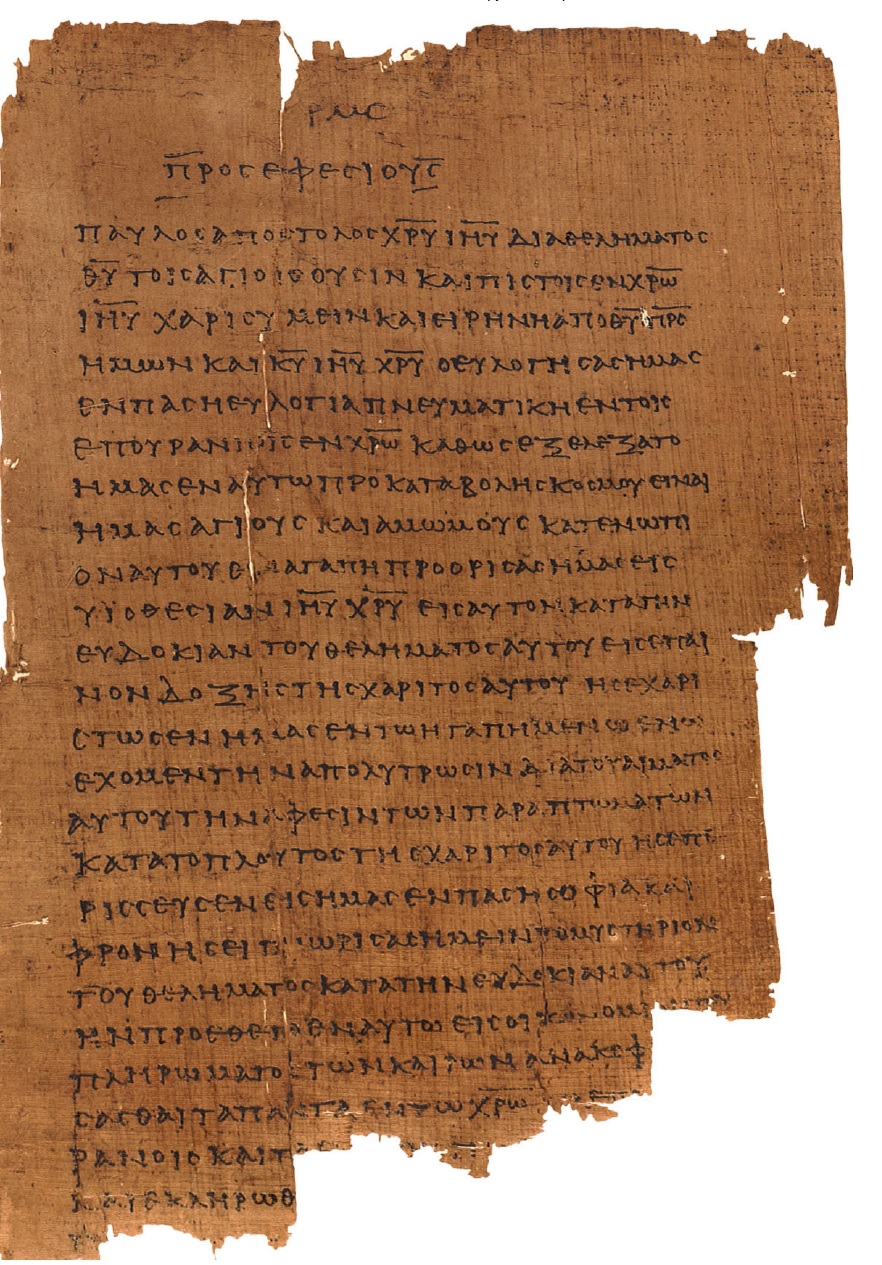 ΡΜϹ
Π̅ΡΟϹΕΦΕϹΙΟΥϹ̅
ΠΑΥΛΟϹΑΠΟϹΤΟΛΟϹΧ̅Ρ̅Υ̅ Ι̅Η̅Υ̅ ΔΙΑΘΕΛΗΜΑΤΟϹ
Θ̅Υ̅ ΤΟΙϹΑΓΙΟΙϹΟΥϹΙΝ ΚΑΙΠΙϹΤΟΙϹΕΝΧ̅Ρ̅Ω̅
Ι̅Η̅Υ̅ ΧΑΡΙϹΥΜΕΙΝΚΑΙΕΙΡΗΝΗΑΠΟΘ̅Υ̅Π̅Ρ̅Ϲ̅
ΗΜΩΝ ΚΑΙ Κ̅Υ̅ Ι̅Η̅Υ̅ Χ̅Ρ̅Υ̅ ΟΕΥΛΟΓΗϹΑϹΗΜΑϹ
ΕΝΠΑϹΗΕΥΛΟΓΙΑΠΝΕΥΜΑΤΙΚΗΕΝΤΟΙϹ
ΕΠΟΥΡΑΝΙΟΙϹΕΝΧ̅Ρ̅Ω̅ ΚΑΘΩϹΕΞΕΛΕΞΑΤΟ
ΗΜΑϹΕΝΑΥΤΩΠΡΟΚΑΤΑΒΟΛΗϹΚΟϹΜΟΥΕΙΝΑΙ
ΗΜΑϹΑΓΙΟΥϹ ΚΑΙΑΜΩΜΟΥϹ ΚΑΤΕΝΩΠΙ
ΟΝΑΥΤΟΥΕΝΑΓΑΠΗΠΡΟΟΡΙϹΑϹΗΜΑϹΕΙϹ
ΥΙΟΘΕϹΙΑΝ Ι̅Η̅Υ̅ Χ̅Ρ̅Υ̅ ΕΙϹΑΥΤΟΝΚΑΤΑΤΗΝ
ΕΥΔΟΚΙΑΝ ΤΟΥΘΕΛΗΜΑΤΟϹΑΥΤΟΥΕΙϹΕΠΑΙ
ΝΟΝΔΟΞΗϹΤΗϹΧΑΡΙΤΟϹΑΥΤΟΥ ΗϹΕΧΑΡΙ
ϹΤΩϹΕΝΗΜΑϹΕΝΤΩΗΓΑΠΗΜΕΝΩΕΝΩ
ΕΧΟΜΕΝΤΗΝΑΠΟΛΥΤΡΩϹΙΝΔΙΑΤΟΥΑΙΜΑΤΟϹ
ΑΥΤΟΥΤΗΝΑΦΕϹΙΝΤΩΝΠΑΡΑΠΤΩΜΑΤΩΝ
ΚΑΤΑΤΟΠΛΟΥΤΟϹΤΗϹΧΑΡΙΤΟϹΑΥΤΟΥ ΗϹΕΠΕ
ΡΙϹϹΕΥϹΕΝΕΙϹΗΜΑϹΕΝΠΑϹΗϹΟΦΙΑΚΑΙ
ΦΡΟΝΗϹΕΙ ΓΝΩΡΙϹΑϹΗΜΕΙΝΤΟΜΥϹΤΗΡΙΟΝ
ΤΟΥΘΕΛΗΜΑΤΟϹΚΑΤΑΤΗΝΕΥΔΟΚΙΑΝΑΥΤΟΥ
ΗΝΠΡΟΕΘΕΤΟΕΝΑΥΤΩΕΙϹΟΙΚΟΝΟΜ
ΠΛΗΡΩΜΑΤΟϹΤΩΝΚΑΙΡΩΝΑΝΑΚΕΦ
ϹΑϹΘΑΙΤΑΠΑΝΤΑΕΝΤΩΧ̅Ρ̅Ω̅
ΡΑΝΟΙϹΚΑΙΤ
ΚΑΙΕΚΛΗΡΩΘ